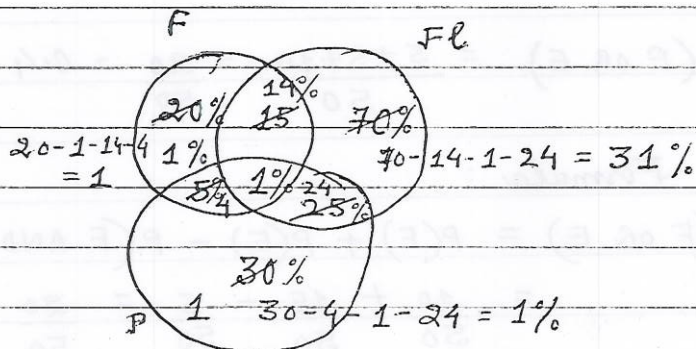 F
Fl
14%
20% 15 70%
20-1-14-4 1% 70-14-1-24 = 31%
= 1
5% 1% 24
4 25%
30%
P 1 30-4-1-24 = 1%